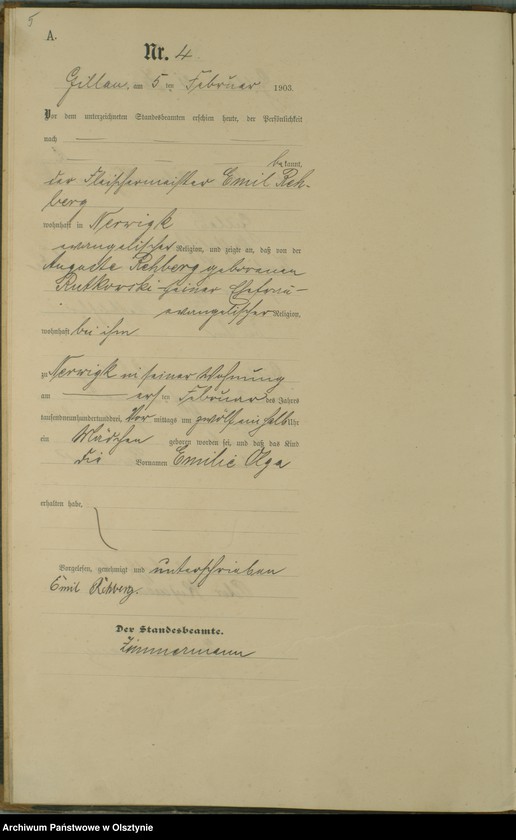 5
A.
Nr. 4
Gillau, am 5 ten Februar 1903.
Vor dem unterzeichneten Standesbeamten erschien heute, der Persönlichkeit
nach
bekannt,
der Fleischermeister Emil Reh-
berg
wohnhaft in Nerwigk
evangelischer Religion, und zeigte an, daß von der
Auguste Rehberg geborenen
Rutkowski seiner Ehefrau
evangelischer Religion,
wohnhaft bei ihm
zu Nerwigk in seiner Wohnung
am ersten Februar des Jahres
tausendneunhundertunddrei, Vor mittags um zwölfeinhalb Uhr
ein Mädchen geboren worden sei, und daß das Kind
die Vornamen Emilie Olga
erhalten habe,
Vorgelesen, genehmigt und unterschrieben
Emil Rehberg.
Der Standesbeamte.
Zimmermann
Archiwum Państwowe w Olsztynie